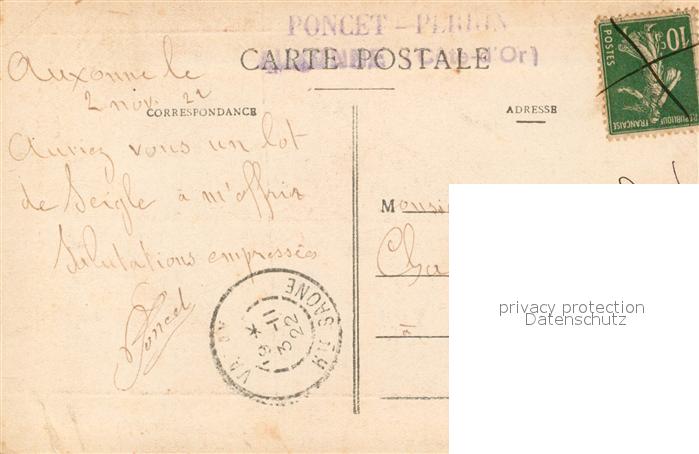 PONCET - PERRIN
AUXONNE (Côte-d'Or)
CARTE POSTALE
10c
POSTES
REPUBLIQUE FRANÇAISE
Auxonne le
2 nov. 22
CORRESPONDANCE
ADRESSE
Auriez vous un lot
de Seigle à m'offrir
Salutations empressées
Poncet
Monsi
Cha
à
SAONE
19 *
3 - 11
22
privacy protection
Datenschutz